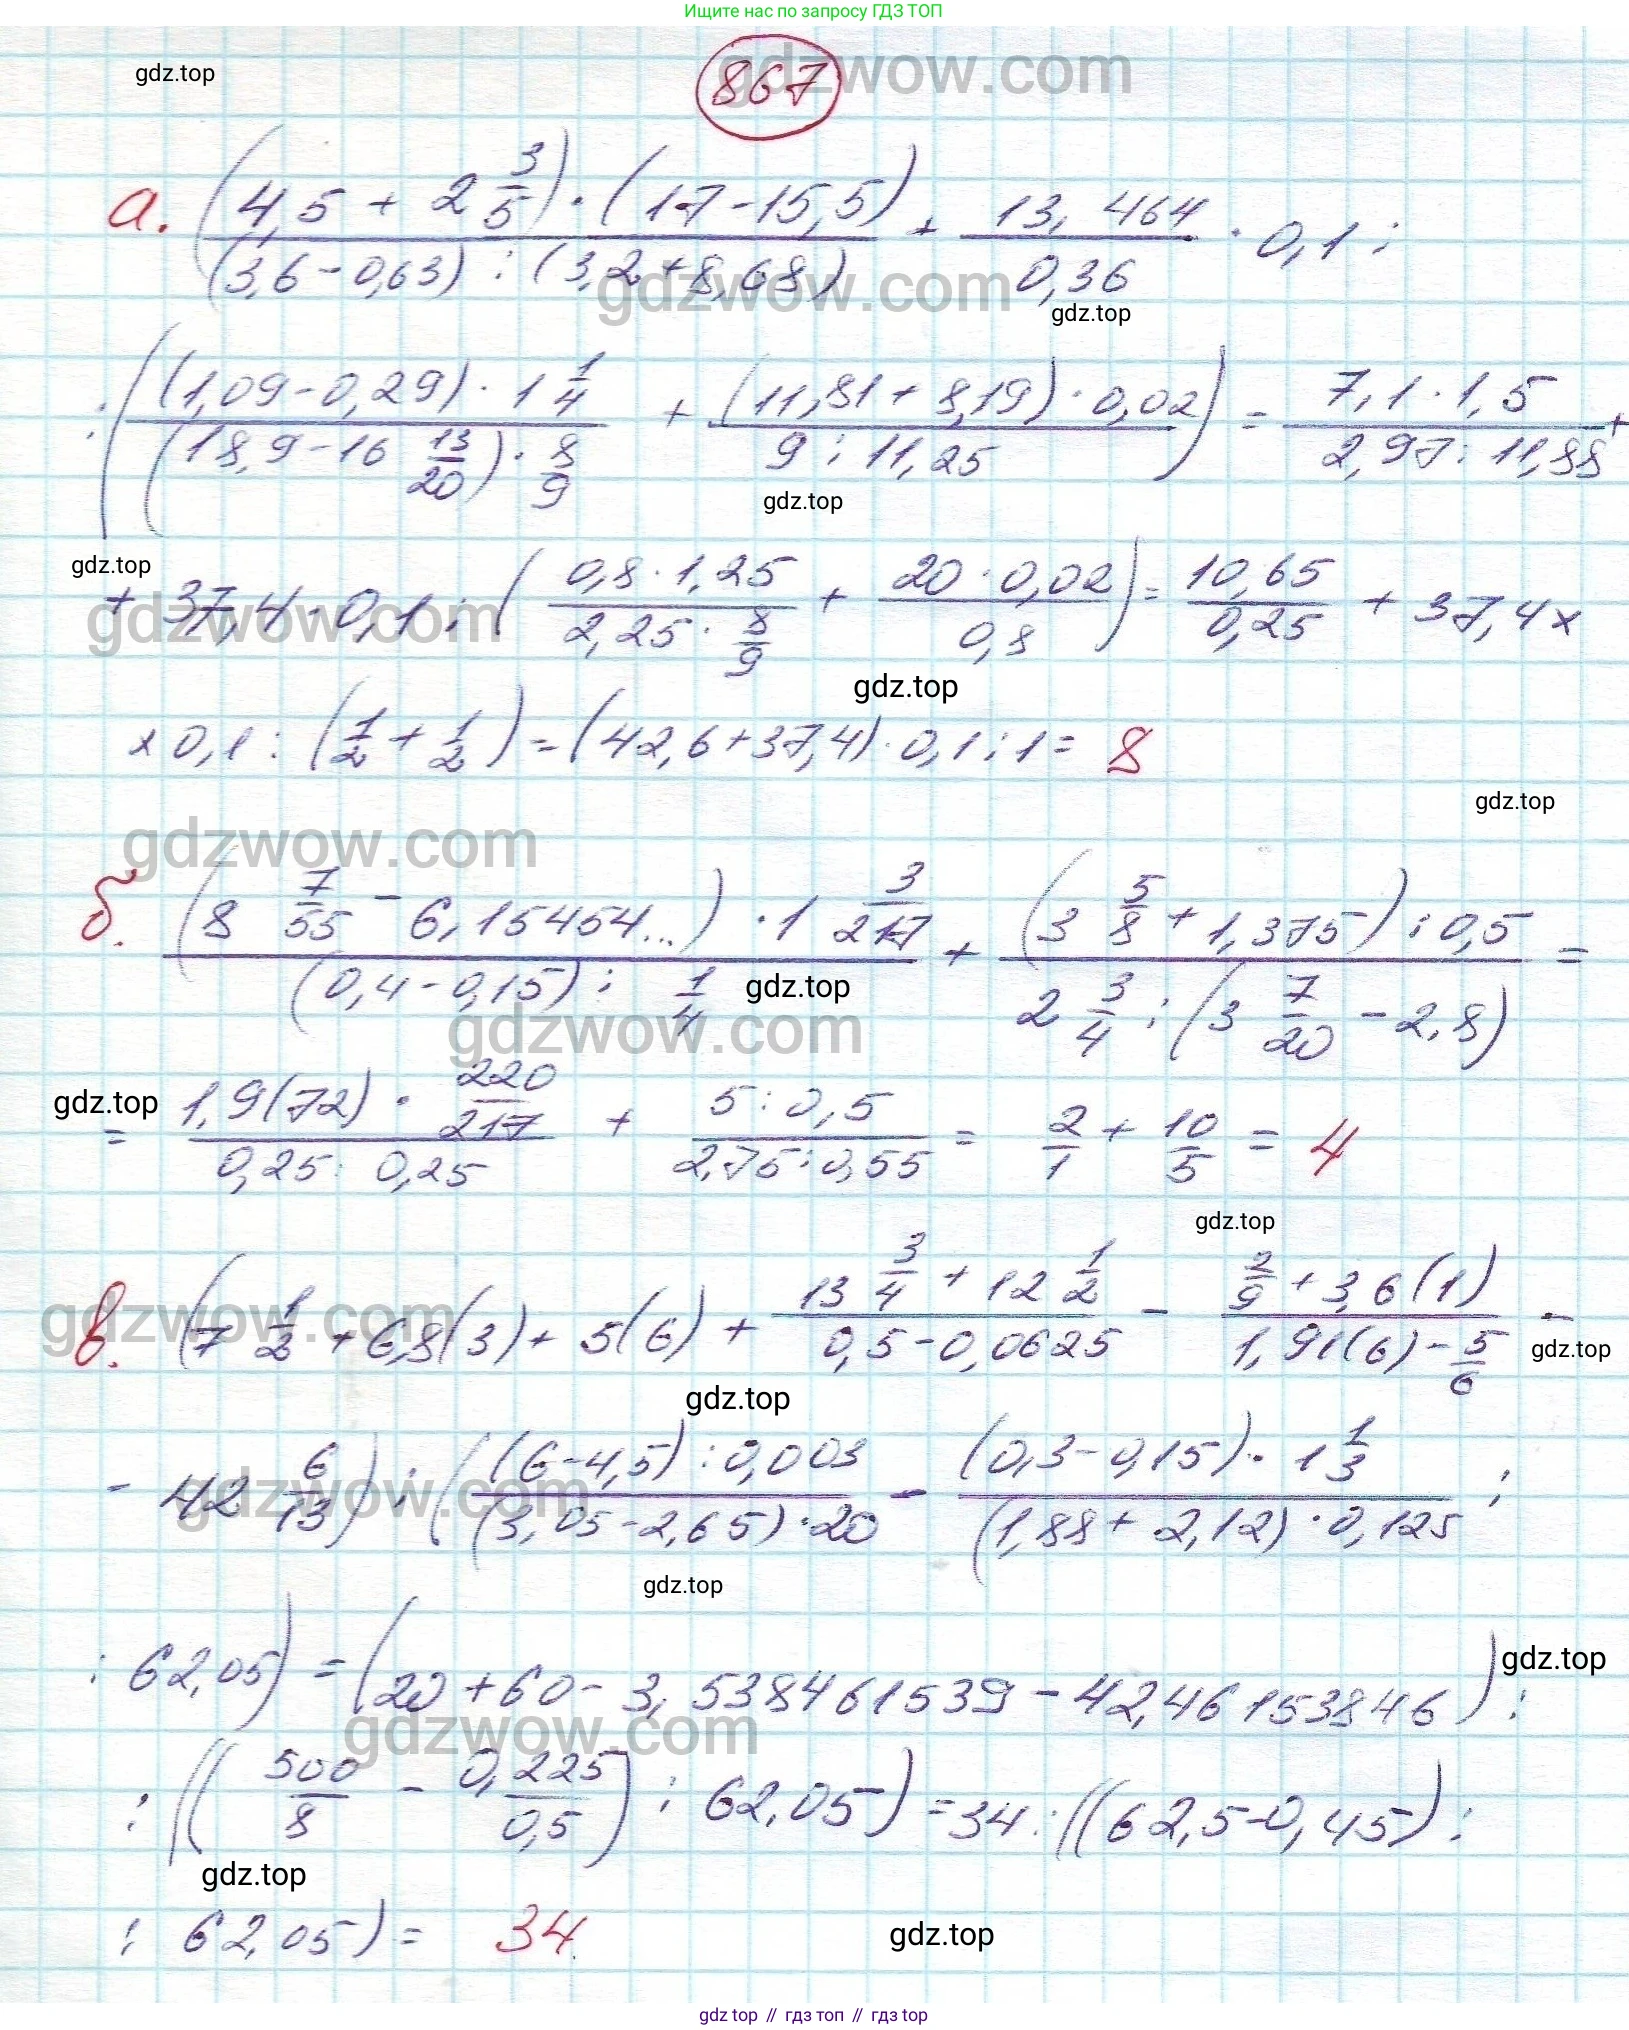 Ищите нас по запросу ГДЗ ТОП
gdz.top
867
gdzwow.com
а. ((4,5 + 2 3/5) · (17 - 15,5)) / ((3,6 - 0,63) : (3,2 + 8,68)) + 13,464 / 0,36 · 0,1 :
gdzwow.com
gdz.top
: (((1,09 - 0,29) · 1 1/4) / ((18,9 - 16 13/20) · 8/9) + ((11,81 + 8,19) · 0,02) / (9 : 11,25)) = (7,1 · 1,5) / (2,97 : 11,88) +
gdz.top
gdz.top
+ 37,4 · 0,1 : ((0,8 · 1,25) / (2,25 · 8/9) + (20 · 0,02) / 0,8) = 10,65 / 0,25 + 37,4 x
gdzwow.com
gdz.top
x 0,1 : (1/2 + 1/2) = (42,6 + 37,4) · 0,1 : 1 = 8
gdz.top
gdzwow.com
б. ((8 7/55 - 6,15454...) · 1 3/217) / ((0,4 - 0,15) : 1/4) + ((3 5/8 + 1,375) : 0,5) / (2 3/4 : (3 7/20 - 2,8)) =
gdz.top
gdzwow.com
gdz.top
= (1,9(72) · 220/217) / (0,25 : 0,25) + (5 : 0,5) / (2,75 : 0,55) = 2/1 + 10/5 = 4
gdz.top
в. (7 1/2 + 6,8(3) + 5(6) + (13 3/4 + 12 1/2) / (0,5 - 0,0625) - (2/9 + 3,6(1)) / (1,91(6) - 5/6) -
gdzwow.com
gdz.top
gdz.top
- 42 6/13) : (((6 - 4,5) : 0,003) / ((3,05 - 2,65) · 20) - ((0,3 - 0,15) · 1 1/3) / ((1,88 + 2,12) · 0,125) :
gdzwow.com
gdz.top
: 62,05) = (20 + 60 - 3,538461539 - 42,46153846) :
gdz.top
gdzwow.com
: ((500/8 - 0,225/0,5) : 62,05) = 34 : ((62,5 - 0,45) :
gdz.top
: 62,05) = 34.
gdz.top
gdz top // гдз топ // гдз top